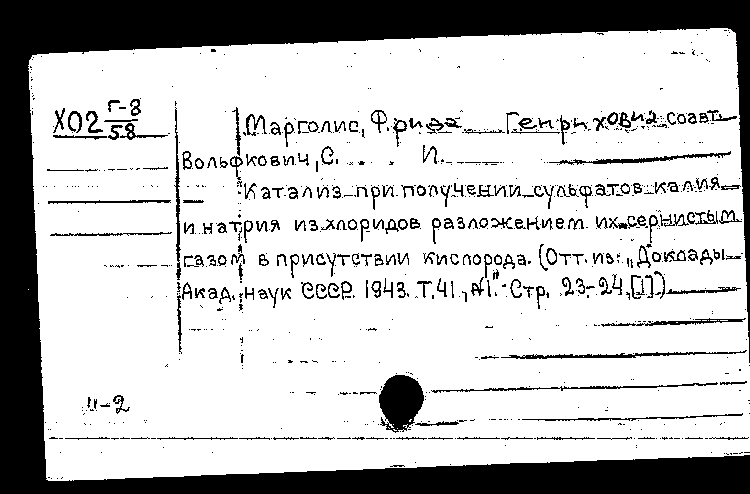 Х02 Г-8/58
Марголис, Фрида Генриховна соавт.
Вольфкович, С. И.
Катализ при получении сульфатов калия
и натрия из хлоридов разложением их сернистым
газом в присутствии кислорода. (Отт. из: „Доклады
Акад. наук СССР. 1943. Т. 41, №1." Стр. 23-24, [1])
II-2